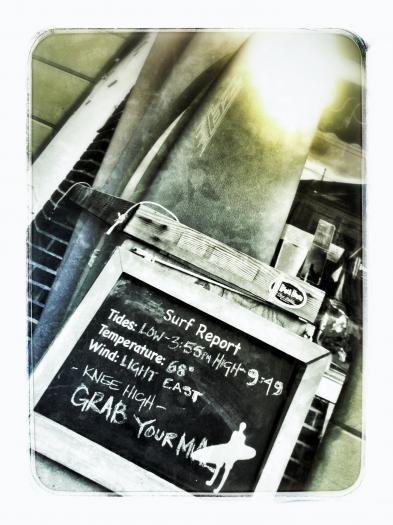 Surf Report
Tides: LOW-3:55PM HIGH-9:49
Temperature: 68°
Wind: LIGHT EAST
- KNEE HIGH -
GRAB YOUR